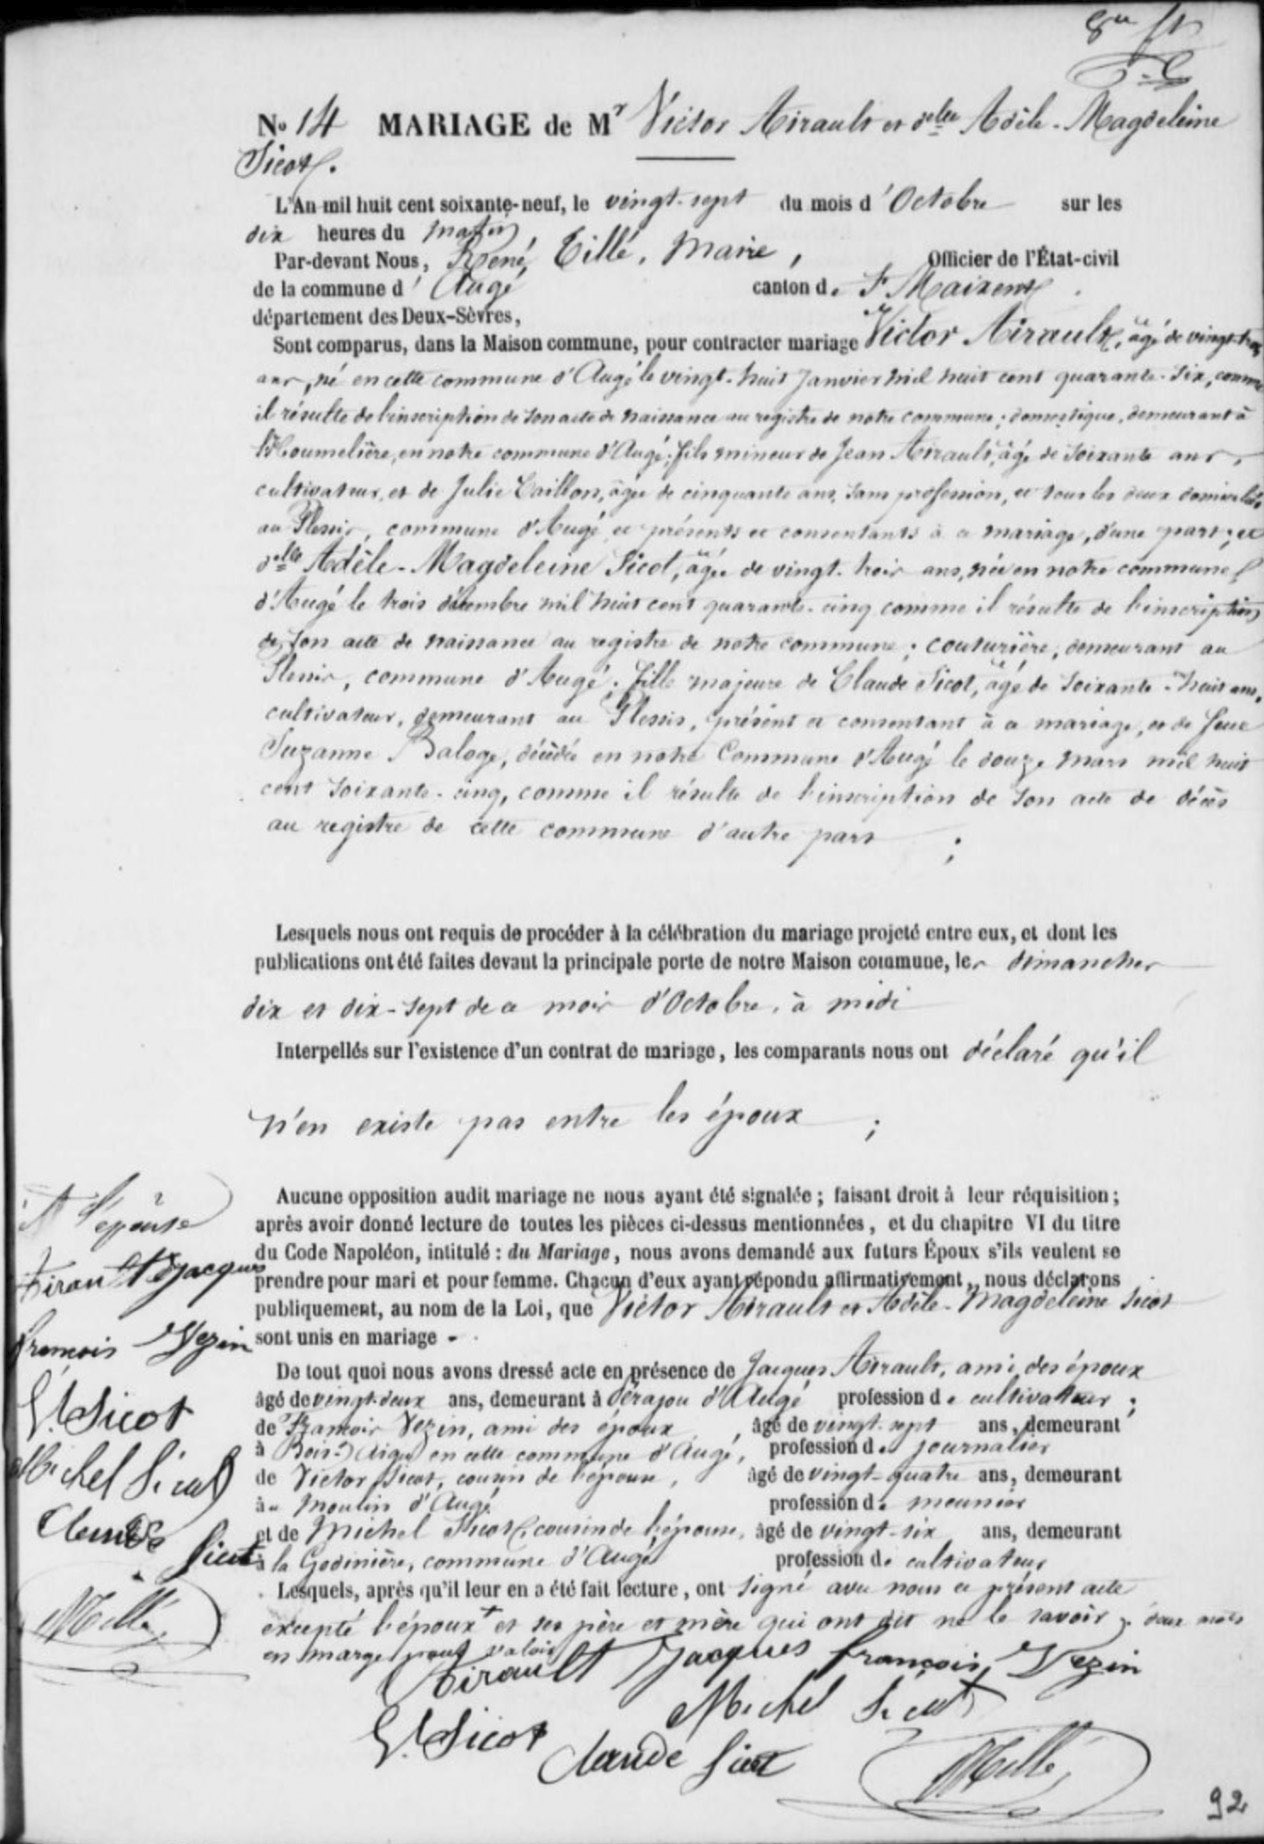 No 14 MARIAGE de Mr Victor Airault et delle Adèle-Magdeleine
Sicot.
L'An mil huit cent soixante-neuf, le vingt-sept du mois d'Octobre sur les
dix heures du matin
Par-devant Nous, René Tillé, Maire, Officier de l'État-civil
de la commune d'Augé canton de St Maixent
département des Deux-Sèvres,
Sont comparus, dans la Maison commune, pour contracter mariage Victor Airault, âgé de vingt-trois
ans, né en cette commune d'Augé le vingt-huit Janvier mil huit cent quarante-six, comme
il résulte de l'inscription de son acte de naissance au registre de notre commune; domestique, demeurant à
en notre commune d'Augé; fils mineur de Jean Airault, âgé de soixante ans,
cultivateur, et de Julie Caillon, âgée de cinquante ans, sans profession, et tous les deux domiciliés
au Plessis, commune d'Augé, et présents et consentants à ce mariage, d'une part; et
delle Adèle-Magdeleine Sicot, âgée de vingt-trois ans, née en notre commune
d'Augé le trois décembre mil huit cent quarante-cinq comme il résulte de l'inscription
de son acte de naissance au registre de notre commune; couturière, demeurant au
Plessis, commune d'Augé; fille majeure de Claude Sicot, âgé de soixante-huit ans,
cultivateur, demeurant au Plessis, présent et consentant à ce mariage, et de feue
Suzanne Baloge, décédée en notre Commune d'Augé le douze mars mil huit
cent soixante-cinq, comme il résulte de l'inscription de son acte de décès
au registre de cette commune d'autre part ;
Lesquels nous ont requis de procéder à la célébration du mariage projeté entre eux, et dont les
publications ont été faites devant la principale porte de notre Maison commune, les dimanches
dix et dix-sept de ce mois d'Octobre, à midi
Interpellés sur l'existence d'un contrat de mariage, les comparants nous ont déclaré qu'il
n'en existe pas entre les époux ;
Aucune opposition audit mariage ne nous ayant été signalée; faisant droit à leur réquisition;
après avoir donné lecture de toutes les pièces ci-dessus mentionnées, et du chapitre VI du titre
du Code Napoléon, intitulé : du Mariage, nous avons demandé aux futurs Époux s'ils veulent se
prendre pour mari et pour femme. Chacun d'eux ayant répondu affirmativement, nous déclarons
publiquement, au nom de la Loi, que Victor Airault et Adèle-Magdeleine Sicot
sont unis en mariage.
De tout quoi nous avons dressé acte en présence de Jacques Airault, ami des époux
âgé de vingt-deux ans, demeurant à d'Augé profession de cultivateur;
de François Vezin, ami des époux âgé de vingt-sept ans, demeurant
à en cette commune d'Augé, profession de journalier
de Victor Sicot, cousin de l'épouse, âgé de vingt-quatre ans, demeurant
au Moulin d'Augé profession de meunier
et de Michel Sicot, cousin de l'épouse, âgé de vingt-six ans, demeurant
à la Godinière, commune d'Augé profession de cultivateur
Lesquels, après qu'il leur en a été fait lecture, ont signé avec nous ce présent acte
excepté l'époux + et ses père et mère qui ont dit ne le savoir
en marge pour valoir
Airault Jacques François Vezin
Michel Sicot
V. Sicot Claude Sicot
Tillé
l'épouse
Airault Jacques
François Vezin
V. Sicot
Michel Sicot
Claude Sicot
Tillé
92